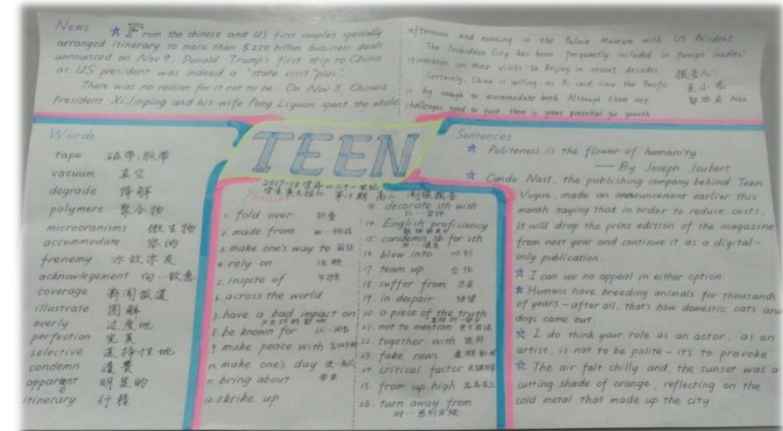 News ☆ From the chinese and US first couple's specially
arranged itinerary to more than $250 billon business deals
announced on Nov 9, Donald Trump's first trip to China
as US president was indeed a "state visit plus".
There was no reason for it not to be. On Nov 8, Chinese
President Xi Jinping and his wife Peng Liyuan spent the whole
afternoon and evening in the Palace Museum with US President.
The Forbidden City has been frequently included in foreign leaders'
itineraries on their visits to Beijing in recent decades.
Certainly, China is willing, as Xi said, since the Pacific
is big enough to accommodate both. Although there are
challenges need to face, there is great potential for growth
摘景人:
TEEN
Words
tape 磁带;胶带
vacuum 真空
degrade 降解
polymers 聚合物
microoranisms 微生物
accommodate 容纳
frenemy 亦敌亦友
acknowlegement 向…致意
coverage 新闻报道
illustrate 图解
overly 过度地
perfection 完美
selective 选择性地
condemn 谴责
apparant 明显的
itinerary 行程
Phrases
1. fold over 折叠
2. made from
3. make one's way to 前往
4. rely on 依赖
5. inspite of 不顾
6. across the world
7. have a bad impact on
8. be known for
9. make peace with
10. make one's day
11. bring about 带来
12. skrike up
decorate sth with
14. English proficiency
15. condemn sb for sth
16. blew into 吹到
17. team up 合作
18. suffer from 忍受
19. in despair 绝望
20. a piece of the truth
21. not to mention 更不用说
22. together with 连同
23. fake news 虚假新闻
24. critical factor 关键因素
25. from up high
26. turn away from
Sentences
☆ Politeness is the flower of humanity.
— By Joseph Joubert
☆ Conde Nast, the publishing company behind Teen
Vogue, made an announcement earlier this
month saying that in order to reduce costs,
It will drop the print edition of the magazine
from next year and continue it as a digital-
only publication.
☆ I can see no appeal in either option.
☆ Humans have breeding animals for thousands
of years – after all, that's how domestic cats and
dogs came out.
☆ I do think your role as an actor, as an
artist, is not to be polite – it's to provoke
☆ The air felt chilly and the sunset was a
cutting shade of orange, reflecting on the
cold metal that made up the city.